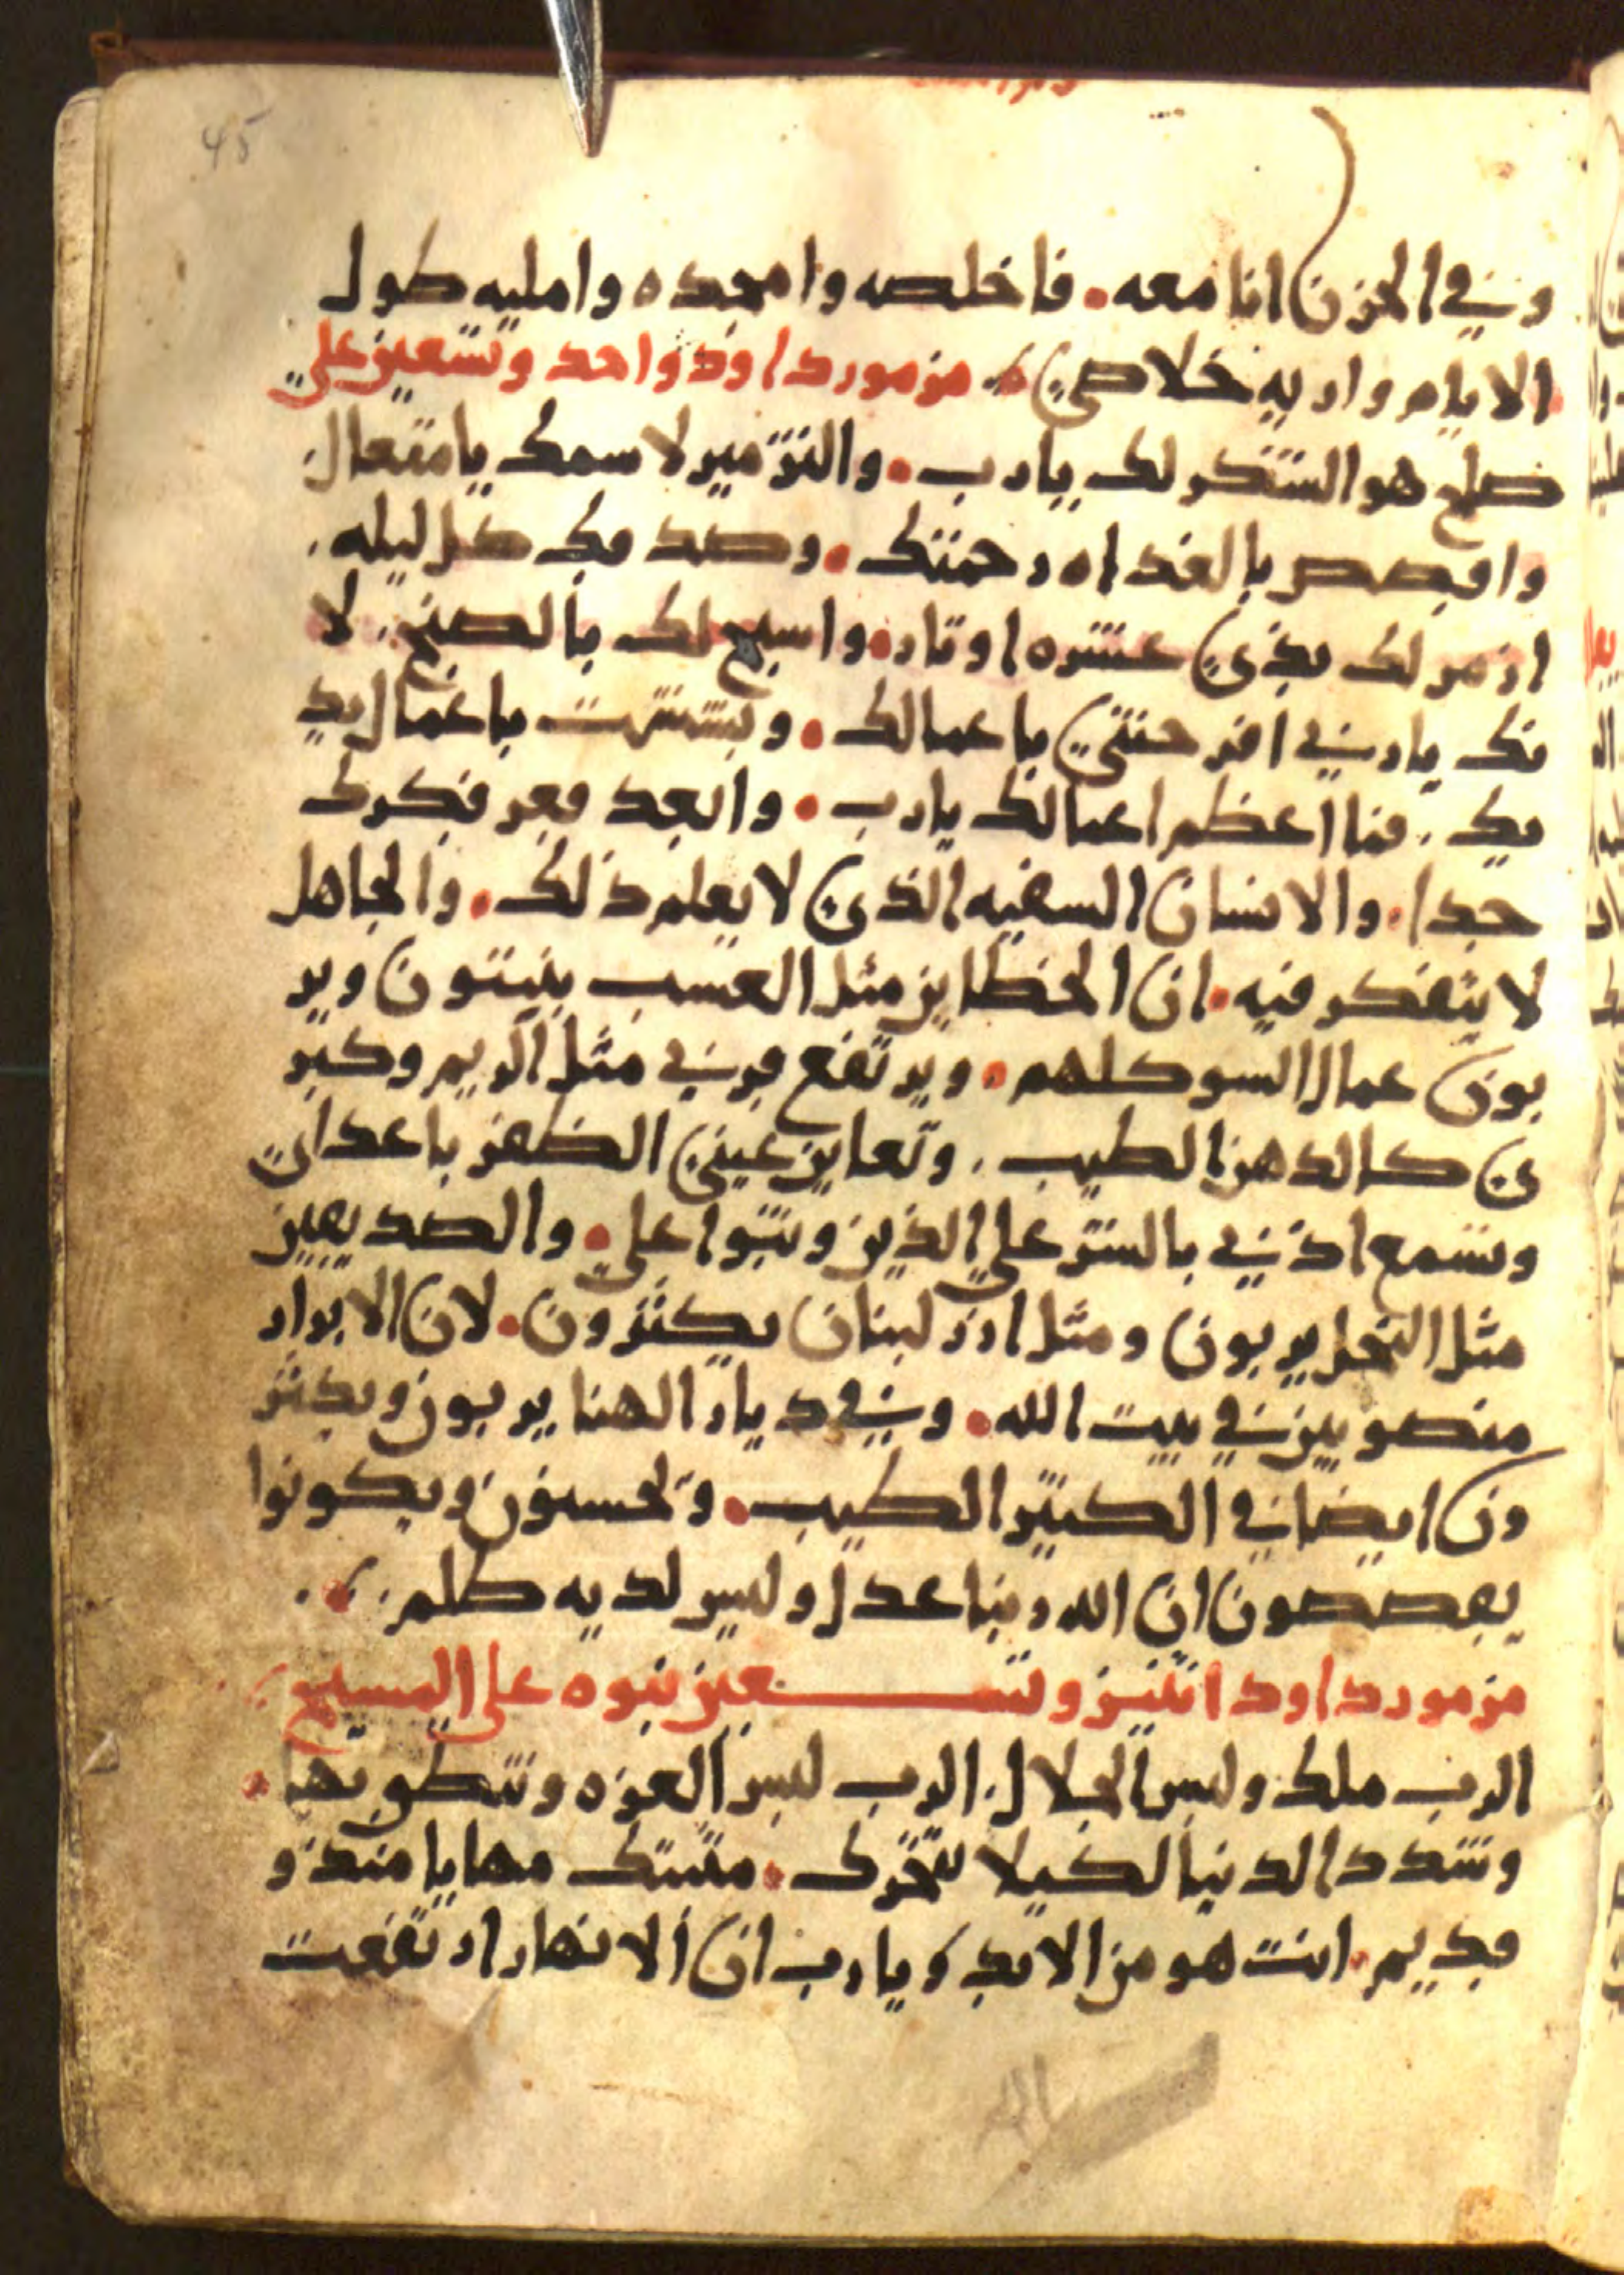 45
وفي الحزن انا معه. فاخلصه وامجده وامليه طول
الايام واريه خلاصي مزمور داود واحد وتسعين علي
صلح هو الشكر لك يارب. والترتيل لاسمك يا متعال
واقصص بالغداه رحمتك. وصدقك كل ليله.
ازمر لك بذي عشره اوتار. واسبح لك بالصنج. لا
نك يا رب في افرحتني باعمالك. وبششت باعمال يد
يك. فما اعظم اعمالك يارب. وابعد قعر فكرك
جدا. والانسان السفيه الذي لا يعلم ذلك. والجاهل
لا يتفكر فيه. ان الخطاين مثل العشب ينبتون وير
بون عمال السو كلهم. ويرتفع قرني مثل الريم وكبر
ي كالدهن الطيب. وتعاين عيني الظفر باعداي
وتسمع اذني بالشر علي الذين وثبوا علي. والصديقين
مثل النخل يربون ومثل ارز لبنان يكثرون. لان الابرار
منصوبين في بيت الله. وفي ديار الهنا يربون ويكثر
ون ايضا في الكثير الطيب. ويحسنون ويكونوا
يقصصون ان الله ربنا عدل وليس لديه ظلم.
مزمور داود اثنين وتسعين نبوه علي المسيح
الرب ملك ولبس الجلال. الرب لبس العزه وتنطق بها.
وشدد الدنيا لكيلا تتحرك. مثبتك مهايا منذ و
قديم. انت هو من الابد يارب ان الانهار ارتفعت